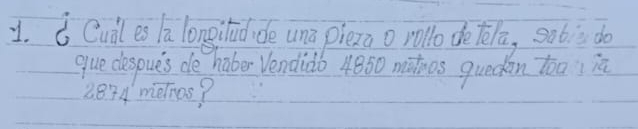 1. ¿Cuál es la longitud de una pieza o rollo de tela, sabiendo
que después de haber vendido 4850 metros quedan todavía
2874 metros?